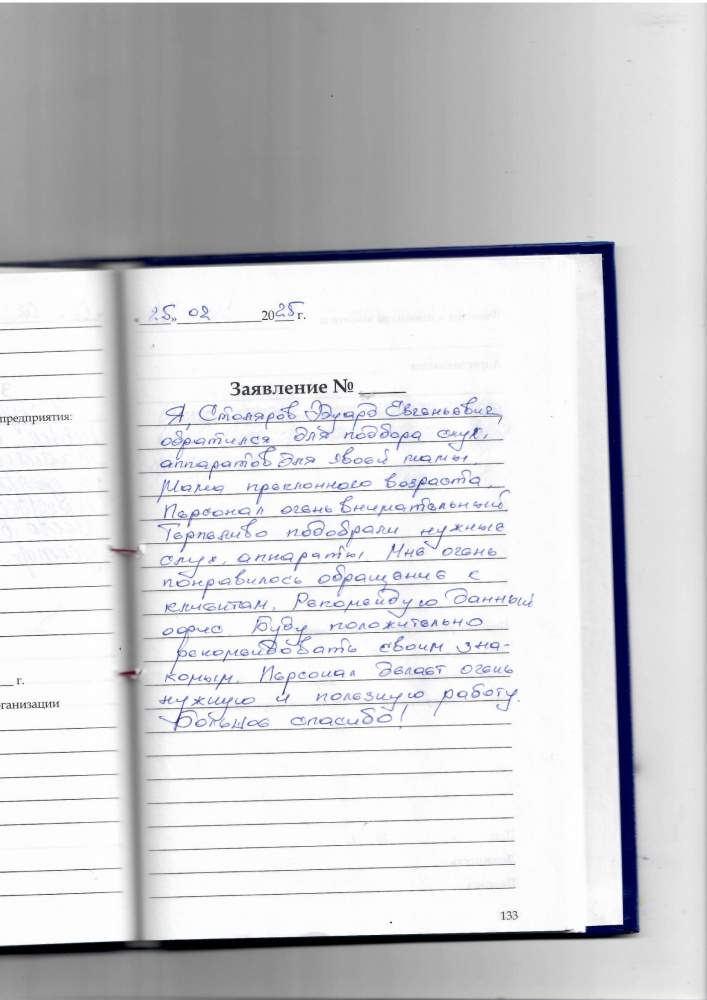 25 „ 02 2025 г.
Заявление №
Я, Столяров Эдуард Евгеньевич,
обратился для подбора слух.
аппаратов для своей мамы
Мама преклонного возраста.
Персонал очень внимательный
Терпеливо подобрали нужные
слух. аппараты Мне очень
понравилось обращение с
клиентам. Рекомендую данный
офис. Буду положительно
рекомендовать своим зна-
комым. Персонал делает очень
нужную и полезную работу.
Большое спасибо!
133
предприятия:
г.
рганизации